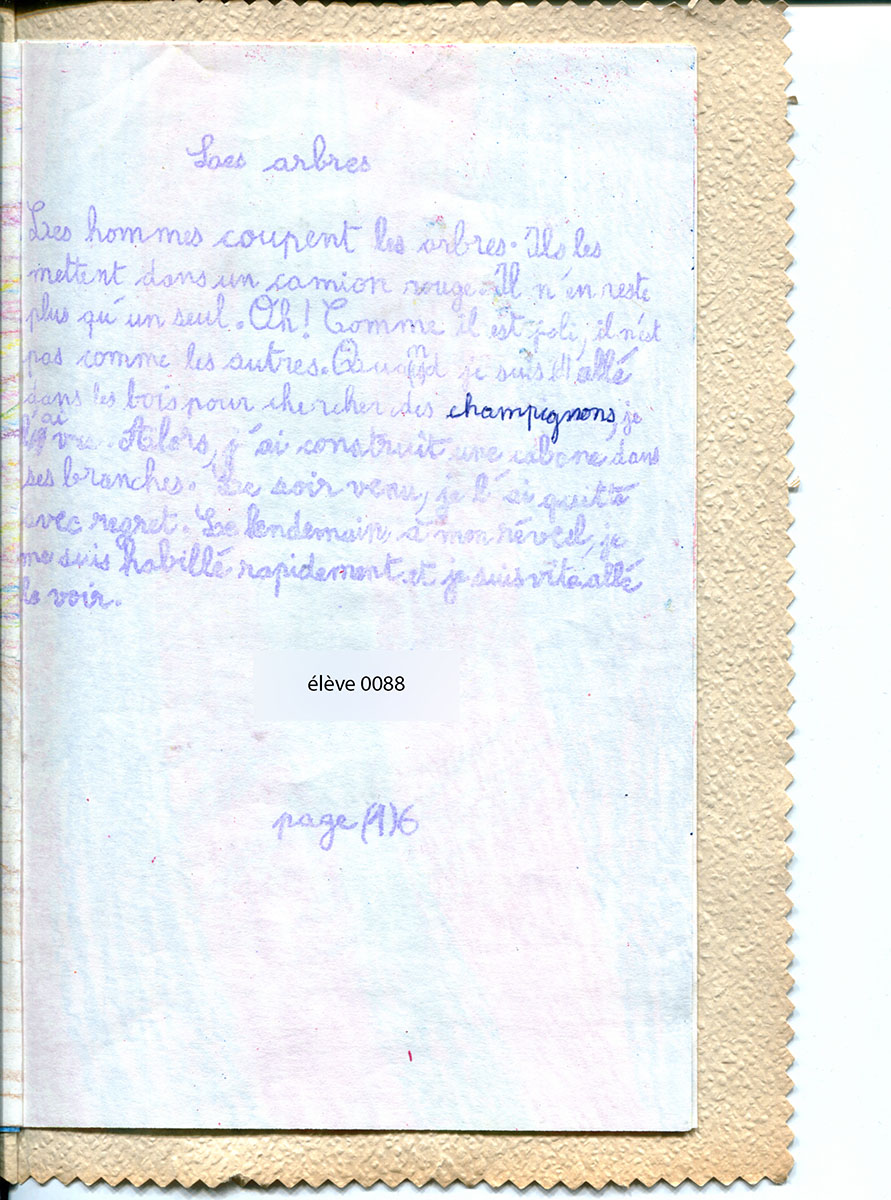 Les arbres
Les hommes coupent les arbres. Ils les
mettent dans un camion rouge. Il n'en reste
plus qu'un seul. Oh! Comme il est joli, il n'est
pas comme les autres. Quand je suis allé
dans les bois pour chercher des champignons, je
l'ai vu. Alors, j'ai construit une cabane dans
ses branches. Le soir venu, je l'ai quitté
avec regret. Le lendemain, à mon réveil, je
me suis habillé rapidement et je suis vite allé
le voir.
élève 0088
page (9)6